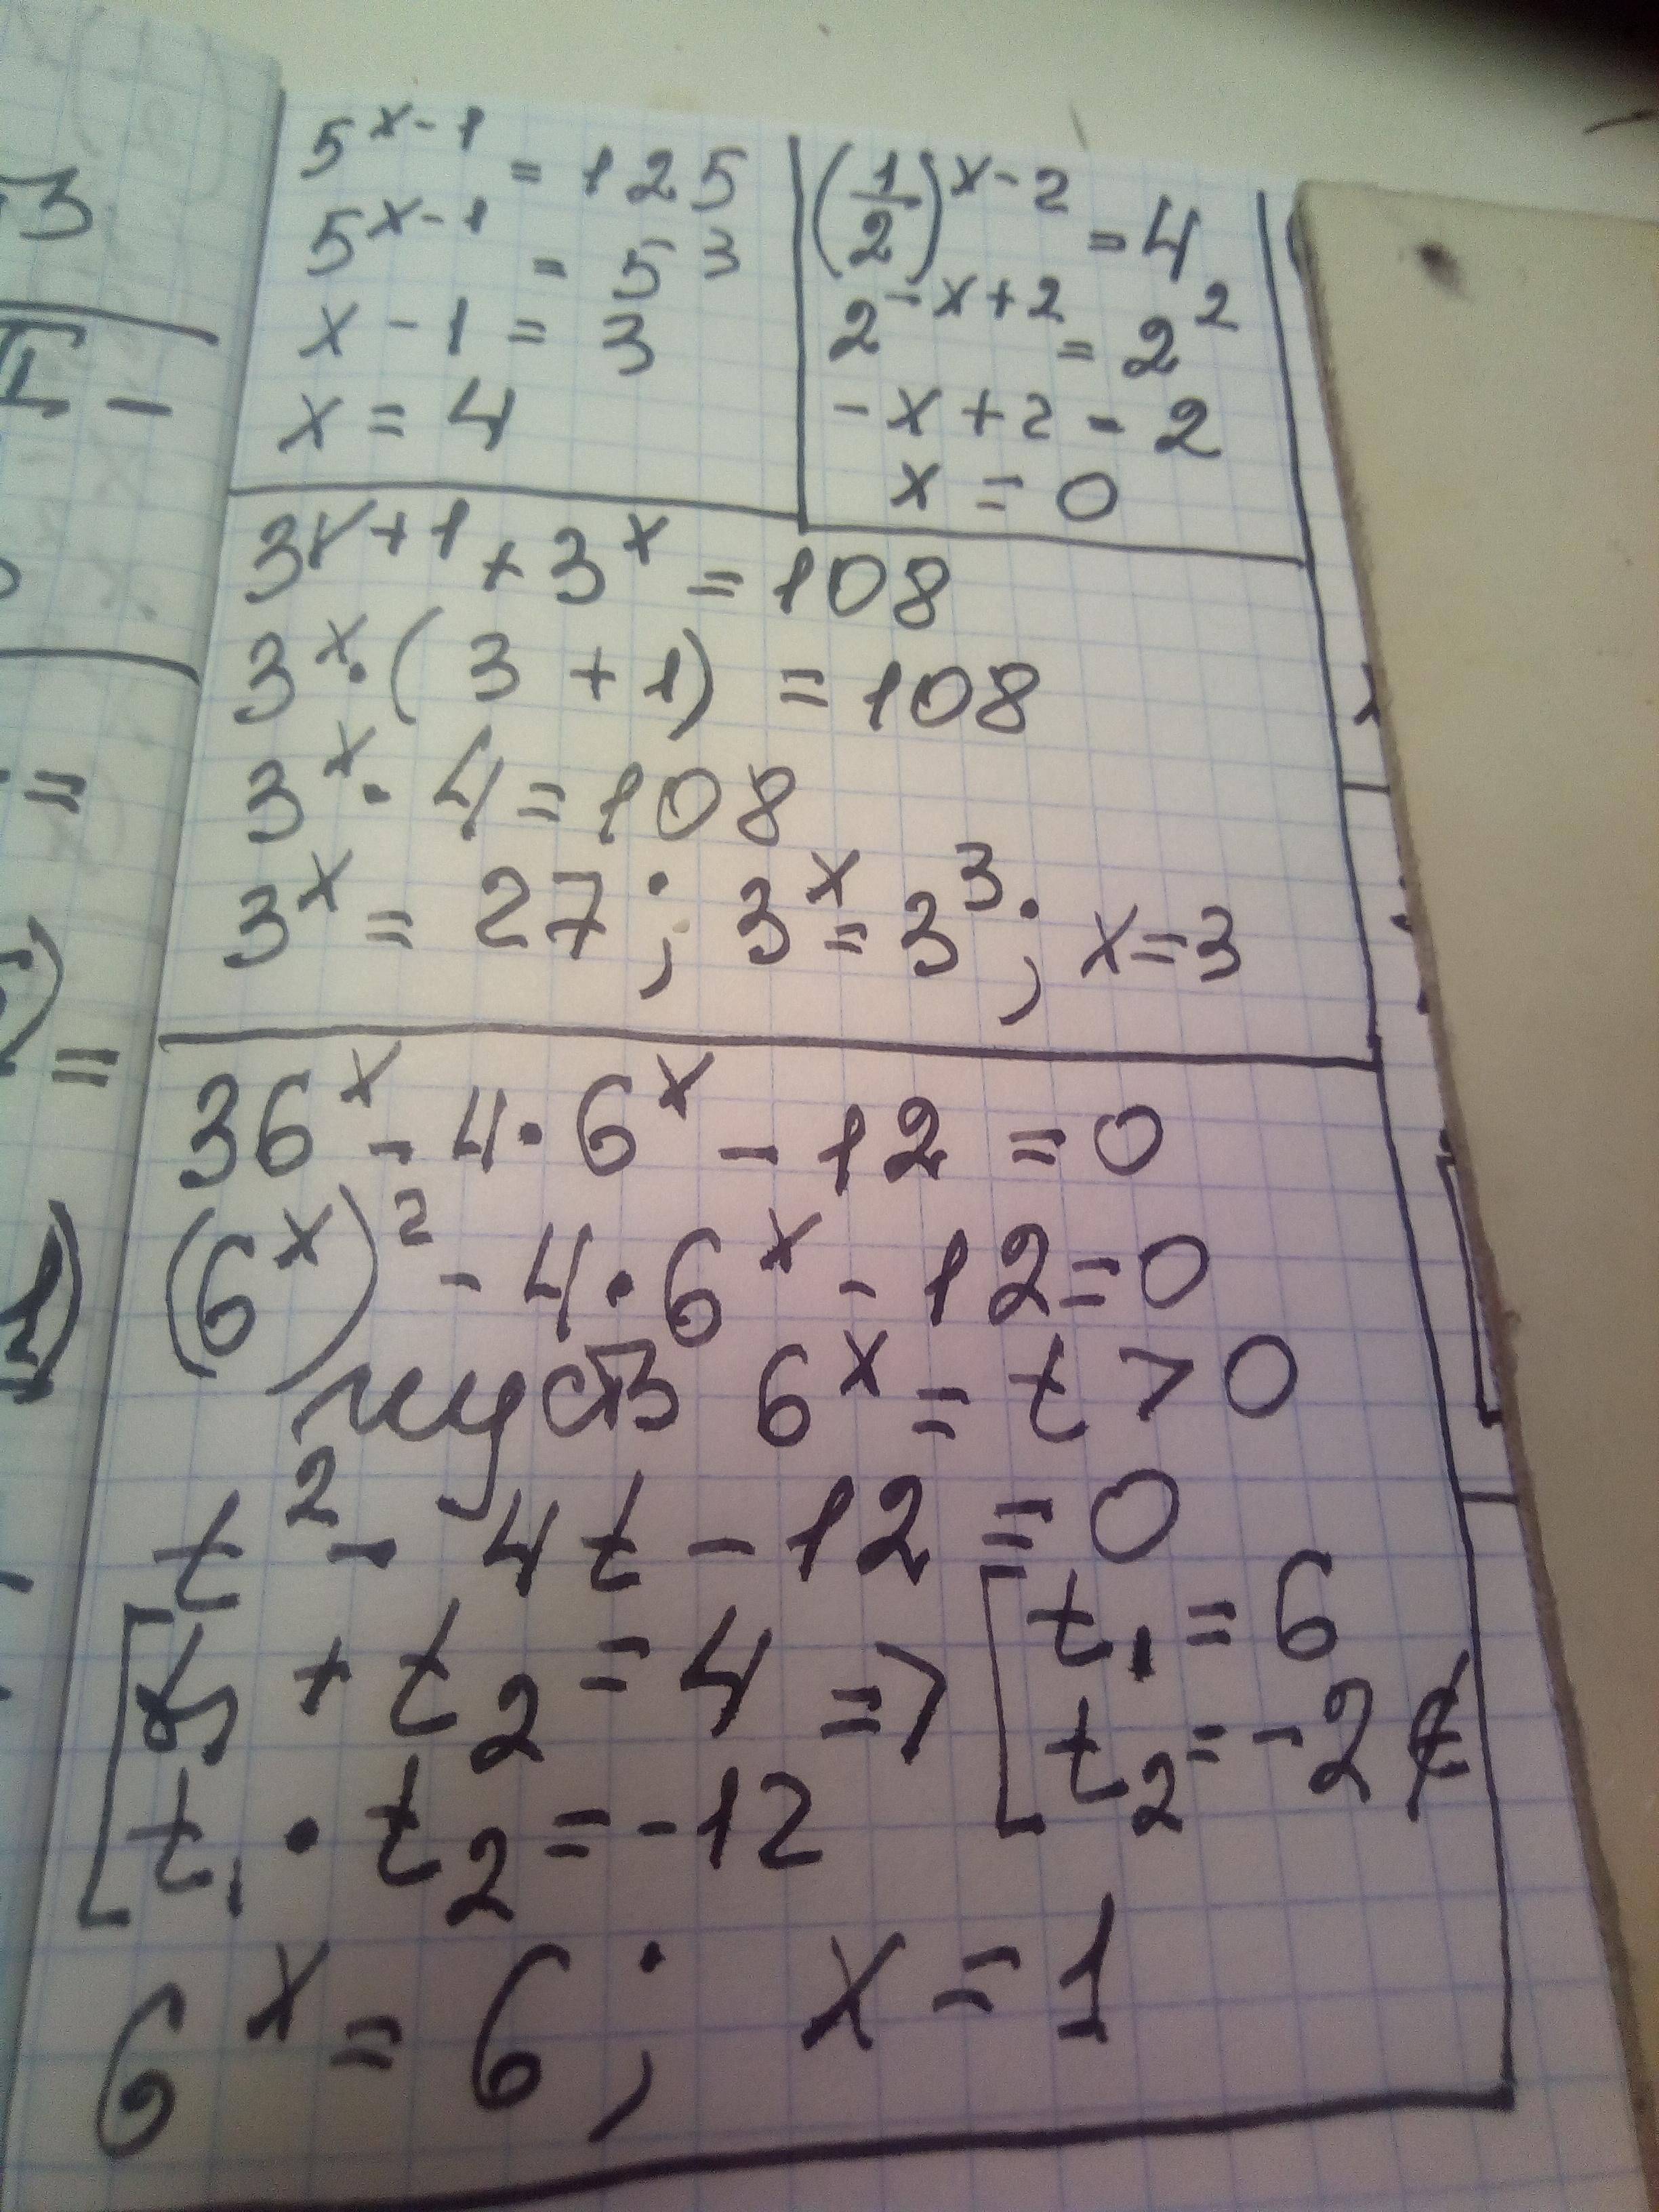 5^{x-1} = 125
5^{x-1} = 5^3
x - 1 = 3
x = 4
(1/2)^{x-2} = 4
2^{-x+2} = 2^2
-x + 2 = 2
x = 0
3^{x+1} + 3^x = 108
3^x · (3 + 1) = 108
3^x · 4 = 108
3^x = 27; 3^x = 3^3; x = 3
36^x - 4 · 6^x - 12 = 0
(6^x)^2 - 4 · 6^x - 12 = 0
пусть 6^x = t > 0
t^2 - 4t - 12 = 0
[ t_1 + t_2 = 4 => [ t_1 = 6
t_1 · t_2 = -12 t_2 = -2 ∉
6^x = 6; x = 1